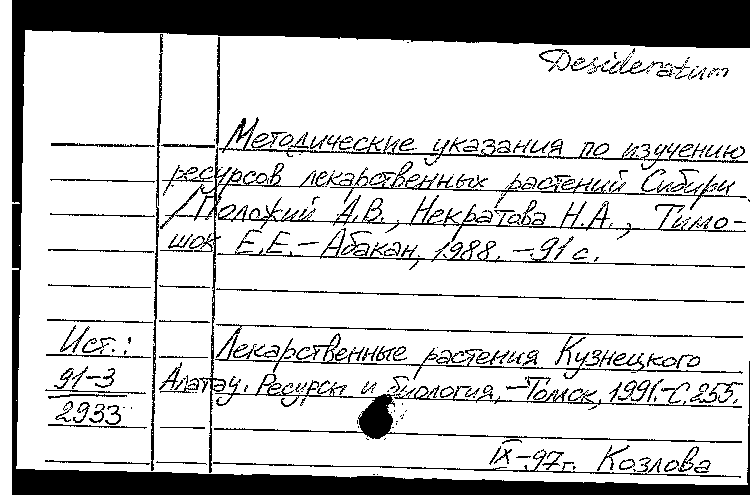 Desideratum
Методические указания по изучению
ресурсов лекарственных растений Сибири
/Положий А.В., Некратова Н.А., Тимо-
шок Е.Е. – Абакан, 1988. – 91 с.
Ист.: Лекарственные растения Кузнецкого
91-3 Алатау. Ресурсы и биология. – Томск, 1991. – С. 255.
2933
IX-97г. Козлова